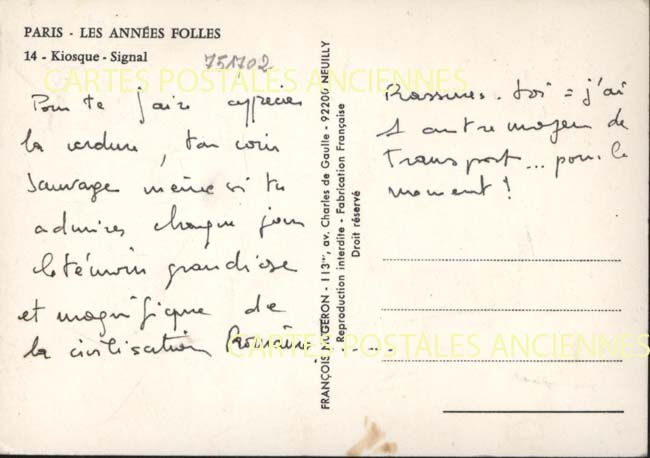 PARIS - LES ANNÉES FOLLES
14 - Kiosque - Signal
751702
CARTES POSTALES ANCIENNES
Pour te faire apprécier
la verdure, ton coin
sauvage même si tu
admires chaque jour
le témoin grandiose
et magnifique de
la civilisation Romaine.....
FRANÇOIS NUGERON - 113ter, av. Charles de Gaulle - 92200 NEUILLY
Reproduction interdite - Fabrication Française
Droit réservé
Rassures-toi = j'ai
1 autre moyen de
transport... pour le
moment !
CARTES POSTALES ANCIENNES